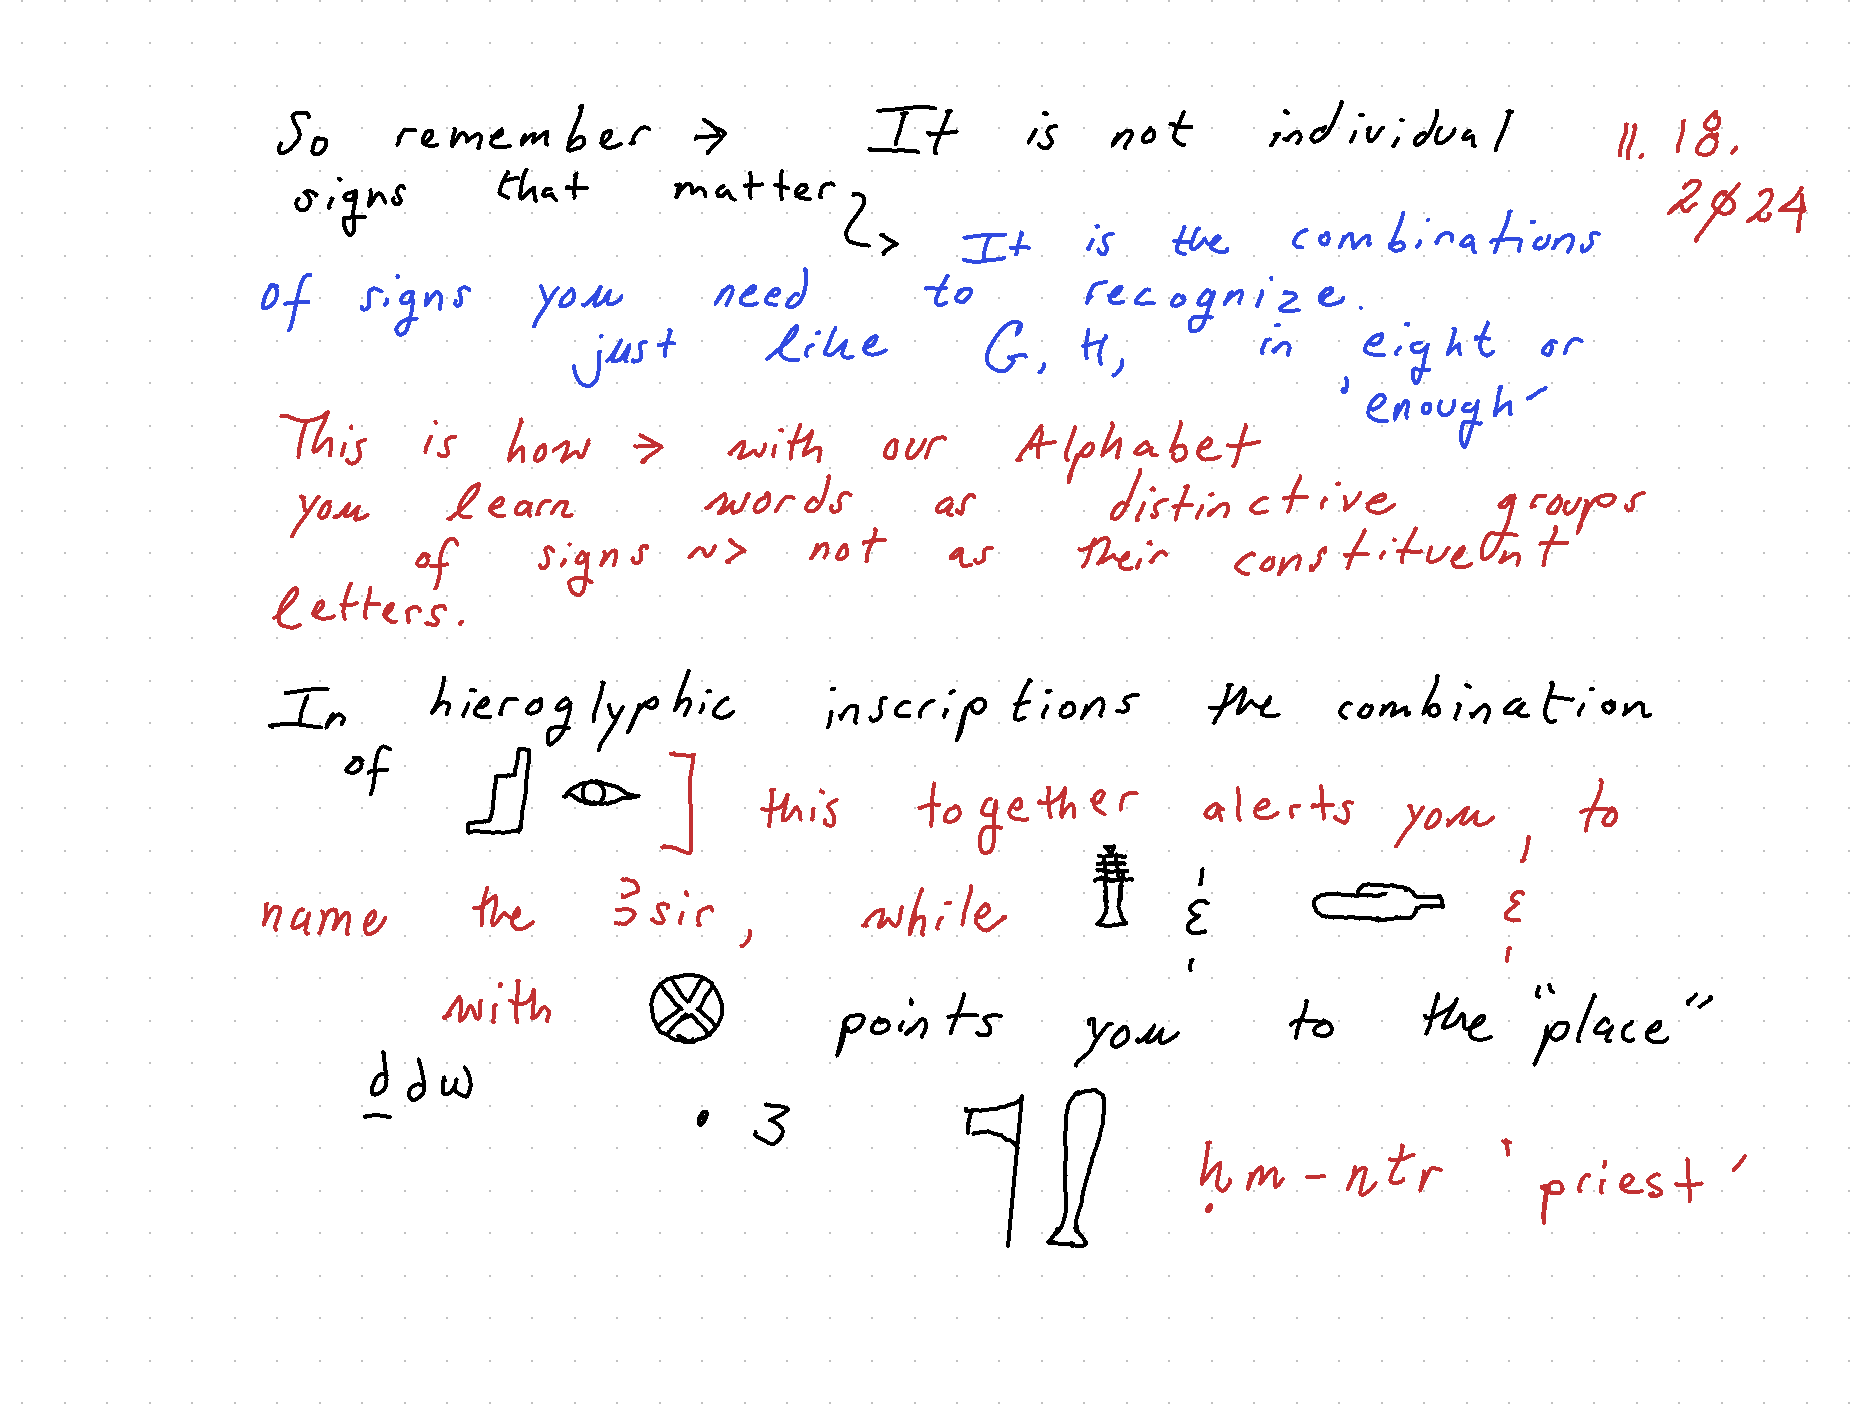 So remember → It is not individual 11. 18.
signs that matter 2024
↳ It is the combinations
of signs you need to recognize.
just like G, H, in eight or
'enough'
This is how → with our Alphabet
you learn words as distinctive groups
of signs ~> not as their constituent
letters.
In hieroglyphic inscriptions the combination
of 𓊨 𓁹 ] this together alerts you, to
name the 3sir, while 𓊽 & 𓂧 &
with 𓊖 points you to the "place"
ḏdw
• 3 𓊹 𓍛 ḥm-ntr 'priest'